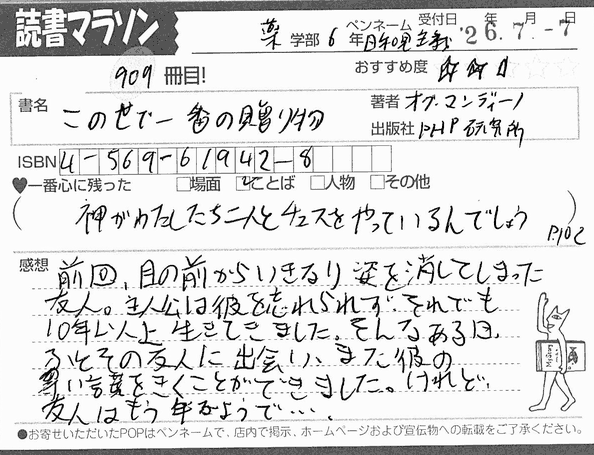 読書マラソン
薬 学部 6 年 ペンネーム 受付日 '26.7.-7 年 月 日
909 冊目! おすすめ度 ☆☆☆
書名 この世で一番の贈り物
著者 オグ・マンディーノ
出版社 PHP研究所
ISBN 4-569-61942-8
♥一番心に残った □場面 □ことば □人物 □その他
(神がわたしたち二人とチェスをやっているんでしょう) P.102
感想 前回、目の前からいきなり姿を消してしまった
友人。主人公は彼を忘れられず、それでも
10年以上生きてきました。そんなある日、
ふとその友人に出会い、また彼の
尊い言葉をきくことができました。けれど、
友人はもう年なようで・・・.
●お寄せいただいたPOPはペンネームで、店内で掲示、ホームページおよび宣伝物への転載をご了承ください。